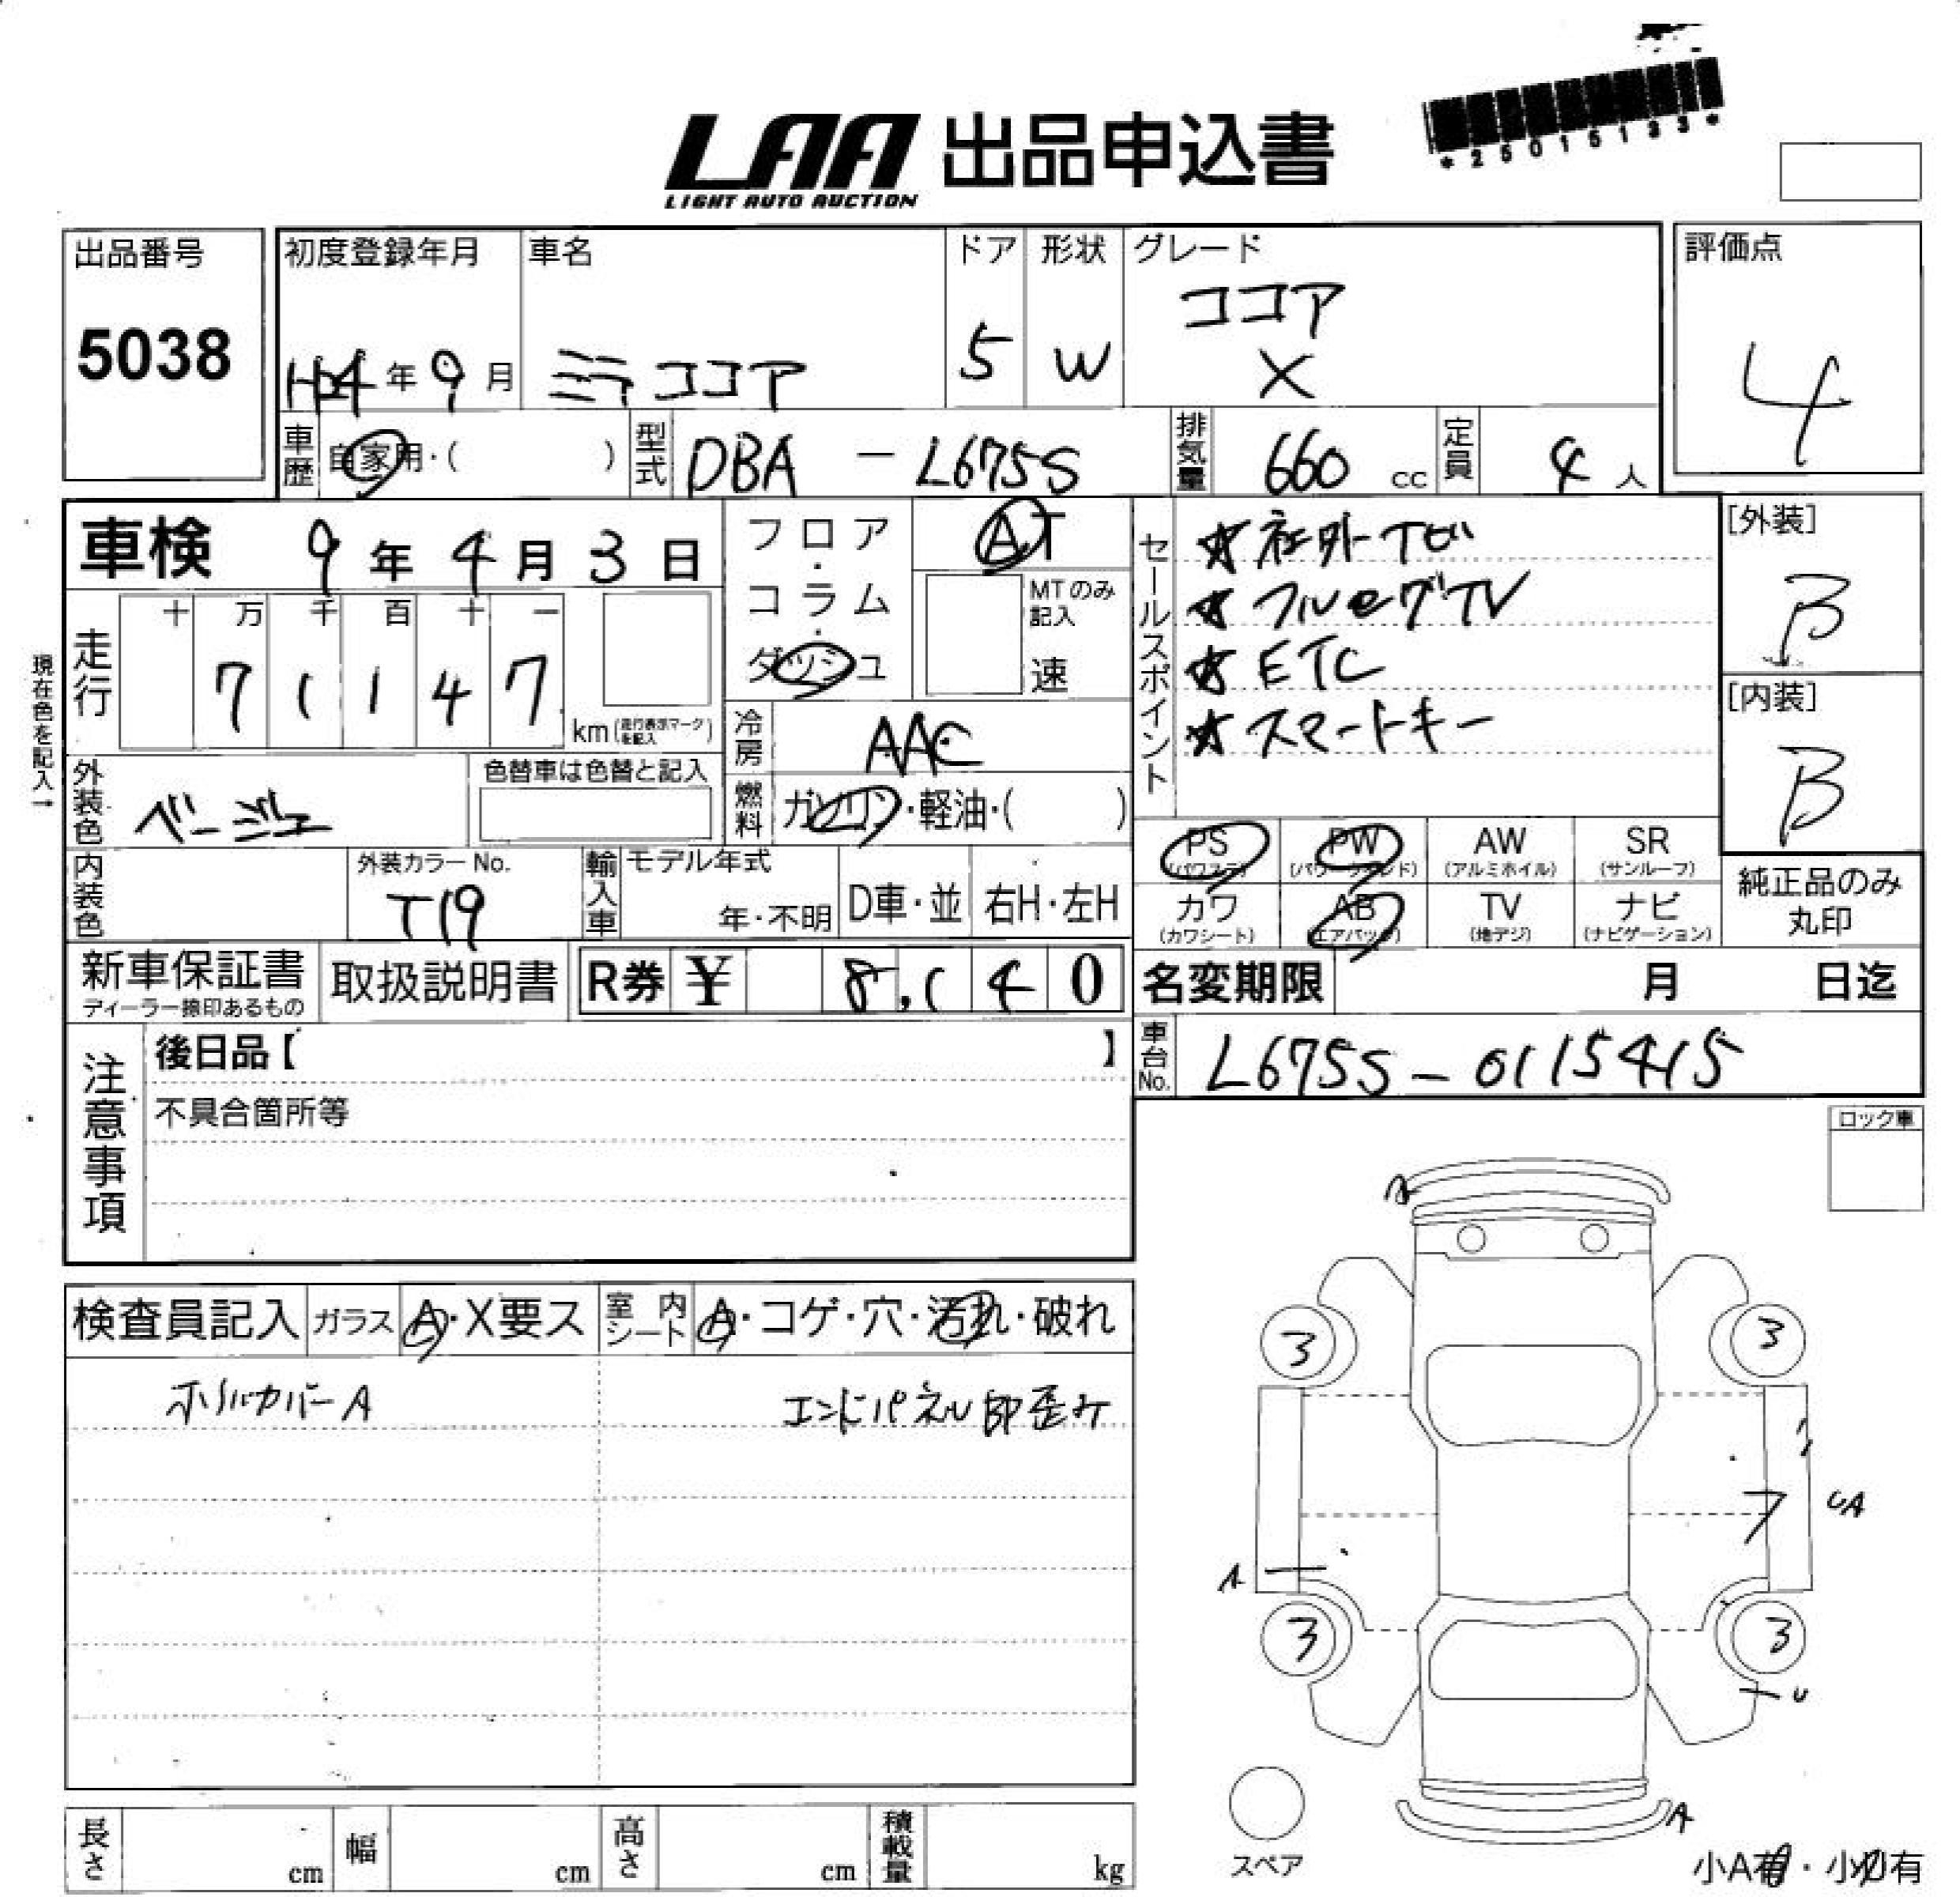 LAA 出品申込書
LIGHT AUTO AUCTION
*25015133*
出品番号
5038
初度登録年月
年 9 月
車名
ミラココア
ドア
5
形状
W
グレード
ココア
X
評価点
4
車歴
自家用・( )
型式
DBA - L675S
排気量
660 cc
定員
4 人
車検 9 年 4 月 3 日
現在色を記入→
走行
十 万 千 百 十 一
7 1 1 4 7
km (走行表示マークを記入)
フロア・コラム・ダッシュ
AT
MTのみ記入
速
冷房
AAC
燃料
ガソリン・軽油・( )
セールスポイント
☆社外ナビ
☆フルセグTV
☆ETC
☆スマートキー
[外装]
B
[内装]
B
外装色
ベージュ
色替車は色替と記入
内装色
外装カラーNo.
T19
輸入車
モデル年式
年・不明
D車・並
右H・左H
PS (パワステ)
PW (パワーウインド)
AW (アルミホイル)
SR (サンルーフ)
カワ (カワシート)
AB (エアバッグ)
TV (地デジ)
ナビ (ナビゲーション)
純正品のみ
丸印
新車保証書
ディーラー捺印あるもの
取扱説明書
R券 ¥ 8,140
名変期限 月 日迄
車台No.
L675S-0115415
注意事項
後日品【 】
不具合箇所等
ロック車
検査員記入
ガラス
A・X要ス
室内シート
A・コゲ・穴・汚れ・破れ
ホイルカバーA
エンドパネル部歪み
A
3
3
UA
A
3
3
U
A
スペア
小A有・小U有
長さ cm
幅 cm
高さ cm
積載量 kg